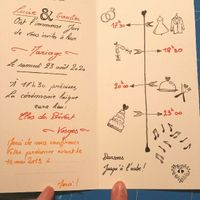 Lucie & Gauthier
Ont l'immense Joie
de vous inviter à leur
Mariage
Le samedi 23 août 2014
À 17h30 précises,
La cérémonie laïque
aura lieu :
Vosges
Merci de nous confirmer
Votre présence avant le
Merci !
17h30
18h30
20h00
23h00
Dansons
Jusqu'à l'aube !